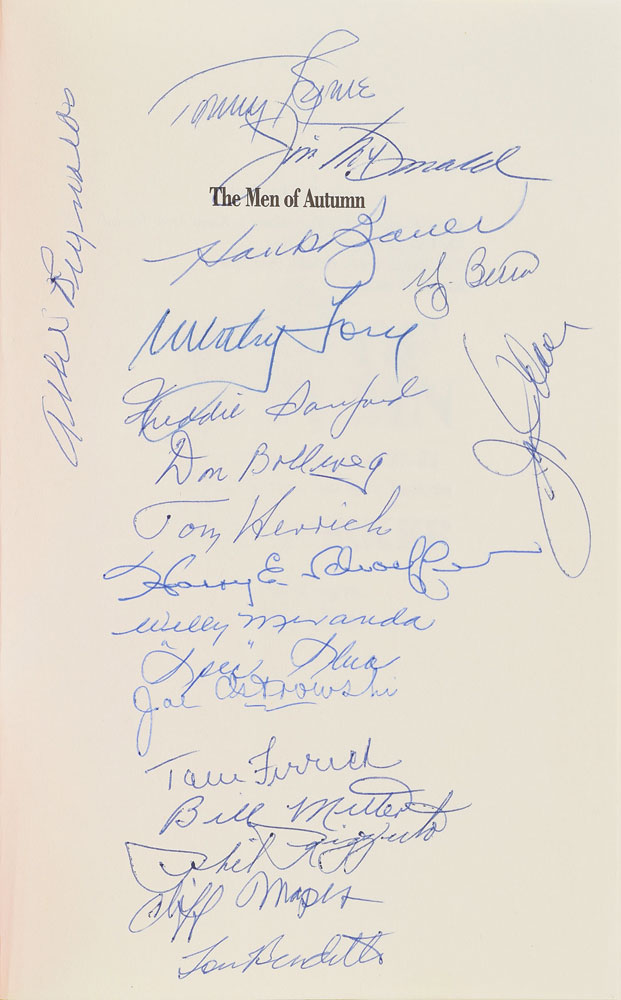 Tommy Byrne
Jim McDonald
The Men of Autumn
Hank Bauer
Y. Berra
Allie Reynolds
Whitey Ford
Freddie Sanford
Don Bollweg
Tommy Henrich
Harry E. Schaeffer
Willy Miranda
"Spec" Shea
Joe Ostrowski
Tom Ferrick
Bill Miller
Phil Rizzuto
Cliff Mapes